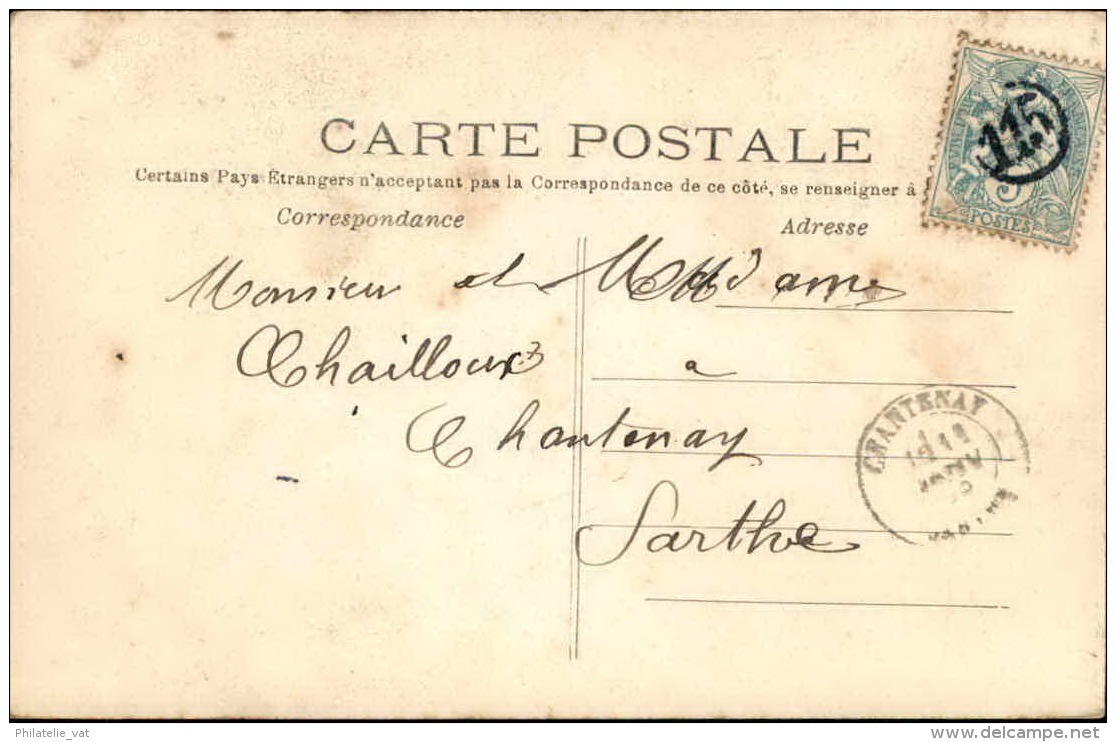 CARTE POSTALE
Certains Pays Étrangers n'acceptant pas la Correspondance de ce côté, se renseigner à
Correspondance
Adresse
115
5
POSTES
Monsieur et Madame
Chailloux à
Chantenay
Sarthe
CHANTENAY
Philatelie_vat
delcampe.net